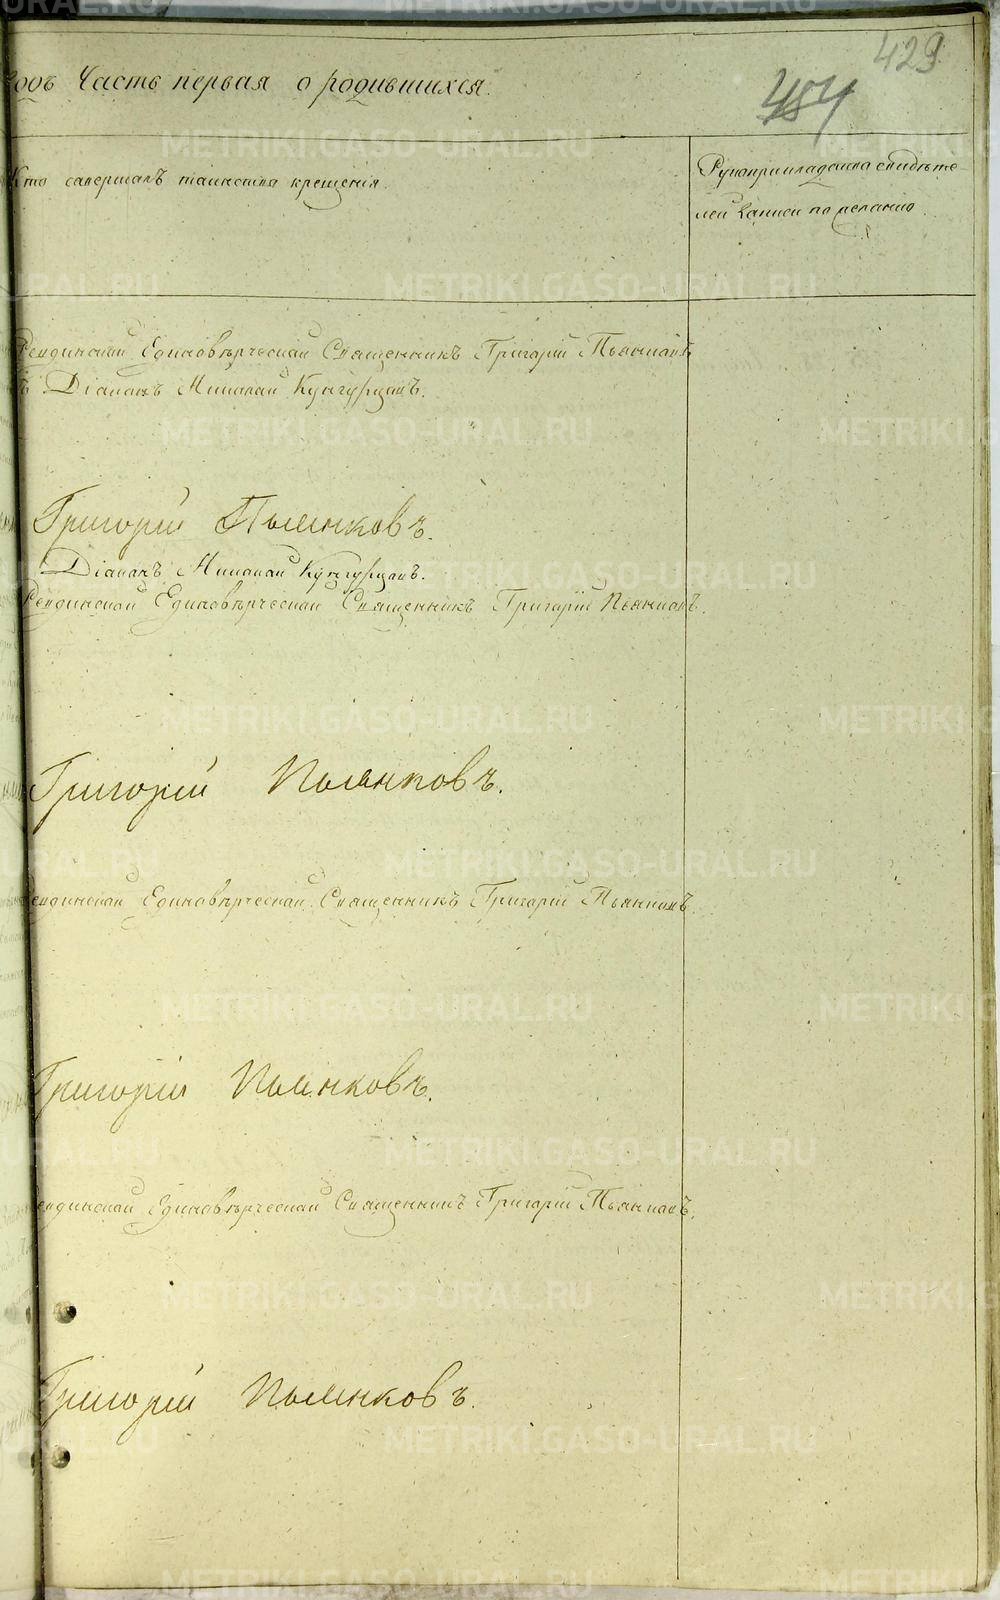 429
484
годъ Часть первая о родившихся.
Кто совершалъ таинство крещенія.
Рукоприкладство свидѣте-
лей записи по желанію.
Ревдинский Единовѣрческий Священникъ Григорий Пьянковъ
съ Діаконъ Николай Кунгурцовъ.
Григорій Пьянковъ.
Діаконъ Николай Кунгурцовъ.
Ревдинский Единовѣрческий Священникъ Григорій Пьянковъ.
Григорій Пьянковъ.
Ревдинский Единовѣрческий Священникъ Григорій Пьянковъ.
Григорій Пьянковъ.
Ревдинский Единовѣрческий Священникъ Григорій Пьянковъ.
Григорій Пьянковъ.
METRIKI.GASO-URAL.RU